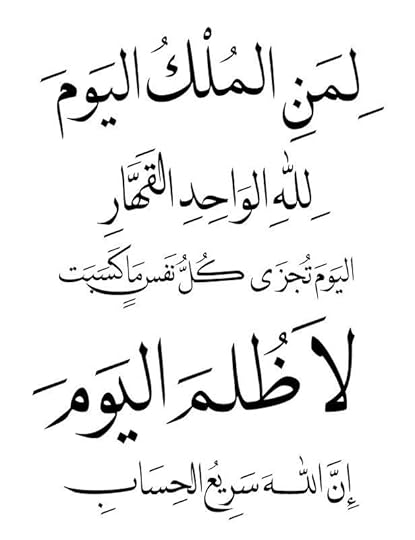 لِمَنِ المُلْكُ اليَومَ
لِلّٰهِ الوَاحِدِ القَهَّارِ
اليَومَ تُجزَى كُلُّ نَفسٍ مَا كَسَبَت
لاَ ظُلمَ اليَومَ
إِنَّ اللّٰهَ سَرِيعُ الحِسَابِ